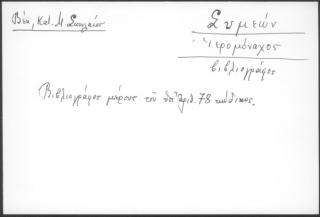 Βέη, Κατ. Μ. Σπηλαίου
Συμεών
Ἱερομόναχος
βιβλιογράφος
Βιβλιογράφος μέρους τοῦ ὑπ' ἀριθ. 78 κώδικος.